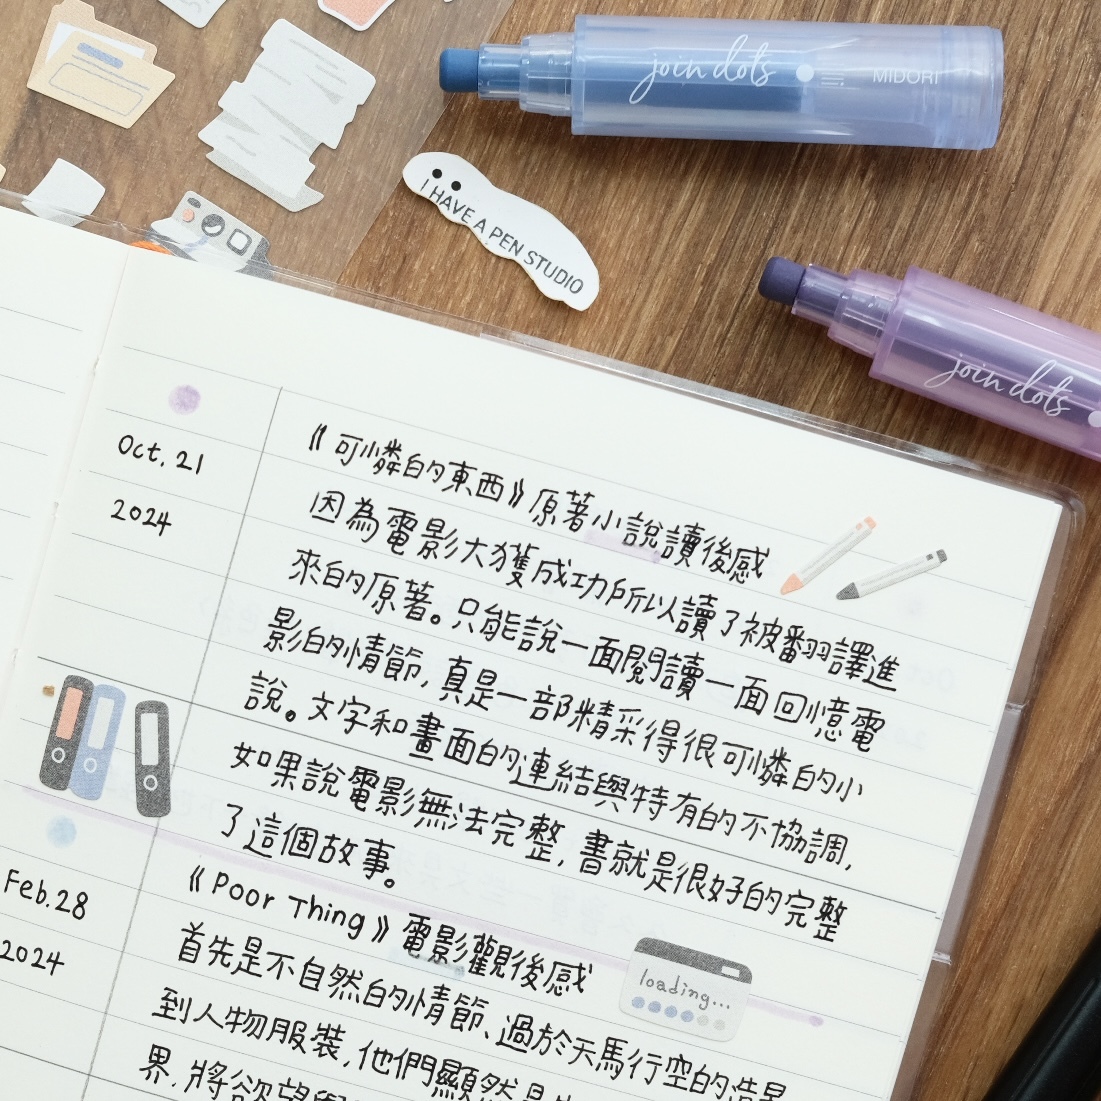 join dots
MIDORI
I HAVE A PEN STUDIO
join dots
Oct. 21
2024
《可憐的東西》原著小說讀後感
因為電影大獲成功所以讀了被翻譯進
來的原著。只能說一面閱讀一面回憶電
影的情節,真是一部精采得很可憐的小
說。文字和畫面的連結與特有的不協調,
如果說電影無法完整,書就是很好的完整
了這個故事。
Feb.28
2024
《Poor Thing》電影觀後感
loading...
首先是不自然的情節、過於天馬行空的造景
到人物服裝,他們顯然是
界.將欲望與